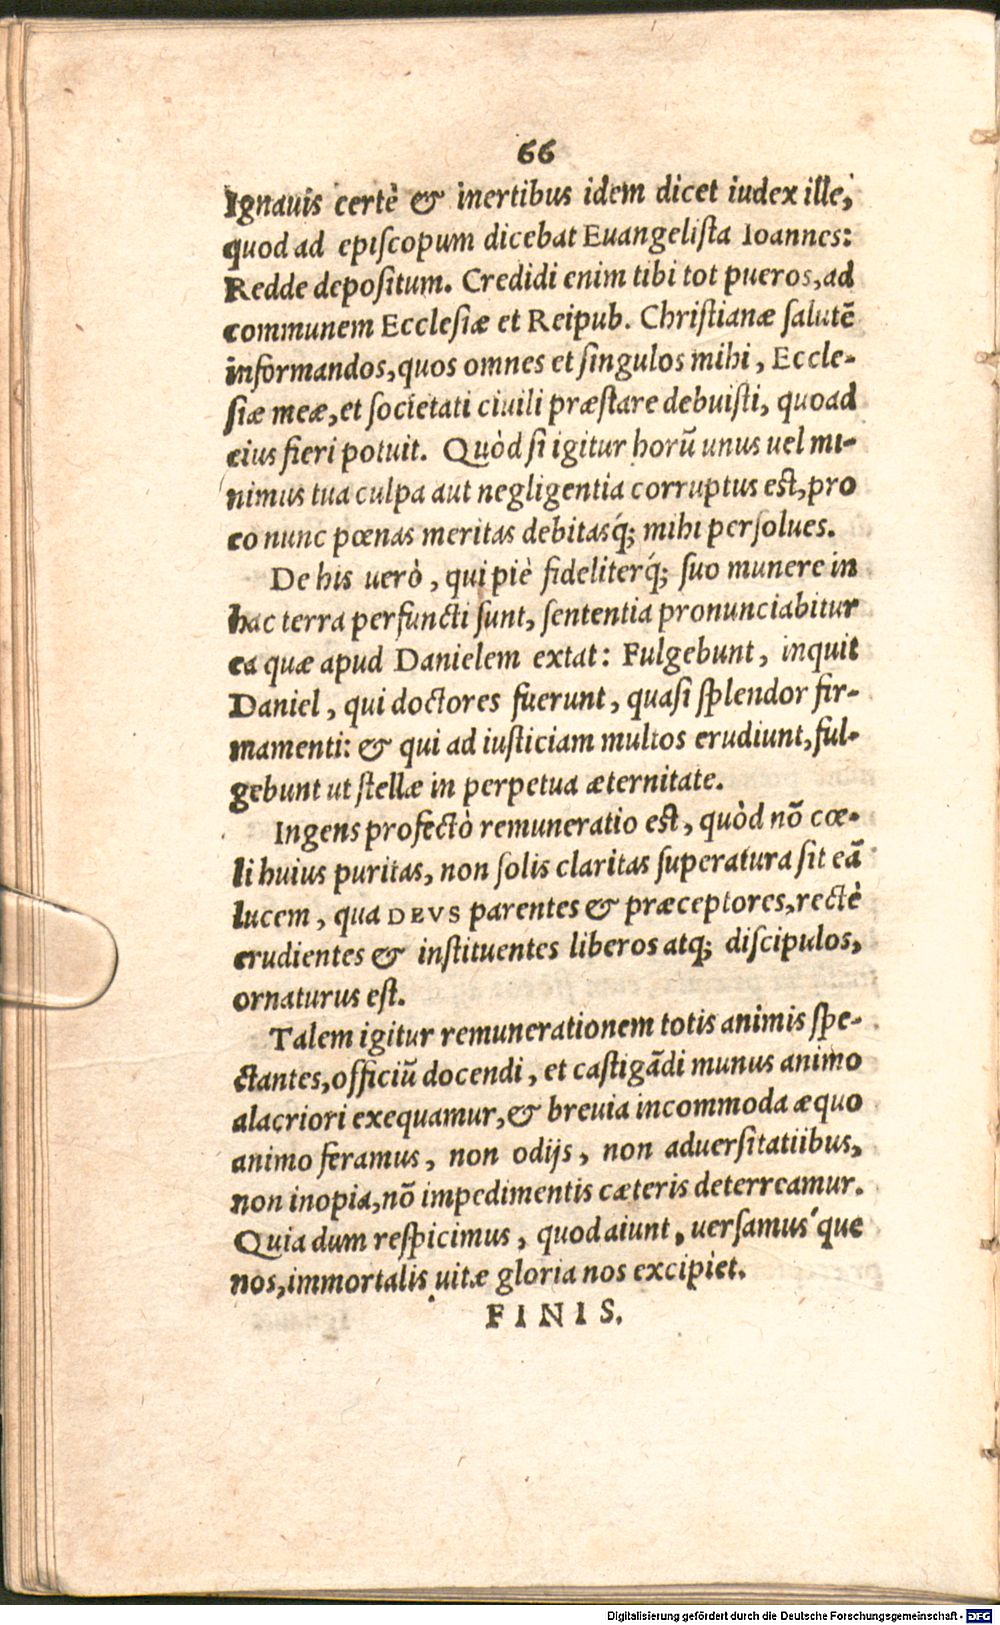 66
Ignauis certè & inertibus idem dicet iudex ille,
quod ad episcopum dicebat Euangelista Ioannes:
Redde depositum. Credidi enim tibi tot pueros, ad
communem Ecclesiæ et Reipub. Christianæ salutē
informandos, quos omnes et singulos mihi, Eccle-
siæ meæ, et societati ciuili præstare debuisti, quoad
eius fieri potuit. Quòd si igitur horũ unus uel mi-
nimus tua culpa aut negligentia corruptus est, pro
eo nunc pœnas meritas debitasq́; mihi persolues.
De his uerò, qui piè fideliterq́; suo munere in
hac terra perfuncti sunt, sententia pronunciabitur
ea quæ apud Danielem extat: Fulgebunt, inquit
Daniel, qui doctores fuerunt, quasi splendor fir-
mamenti: & qui ad iusticiam multos erudiunt, ful-
gebunt ut stellæ in perpetua æternitate.
Ingens profectò remuneratio est, quòd nō cœ-
li huius puritas, non solis claritas superatura sit eā
lucem, qua DEVS parentes & præceptores, rectè
erudientes & instituentes liberos atq; discipulos,
ornaturus est.
Talem igitur remunerationem totis animis spe-
ctantes, officiũ docendi, et castigādi munus animo
alacriori exequamur, & breuia incommoda æquo
animo feramus, non odijs, non aduersitatiibus,
non inopia, nō impedimentis cæteris deterreamur.
Quia dum respicimus, quod aiunt, uersamus'que
nos, immortalis uitæ gloria nos excipiet.
FINIS.
Digitalisierung gefördert durch die Deutsche Forschungsgemeinschaft - DFG